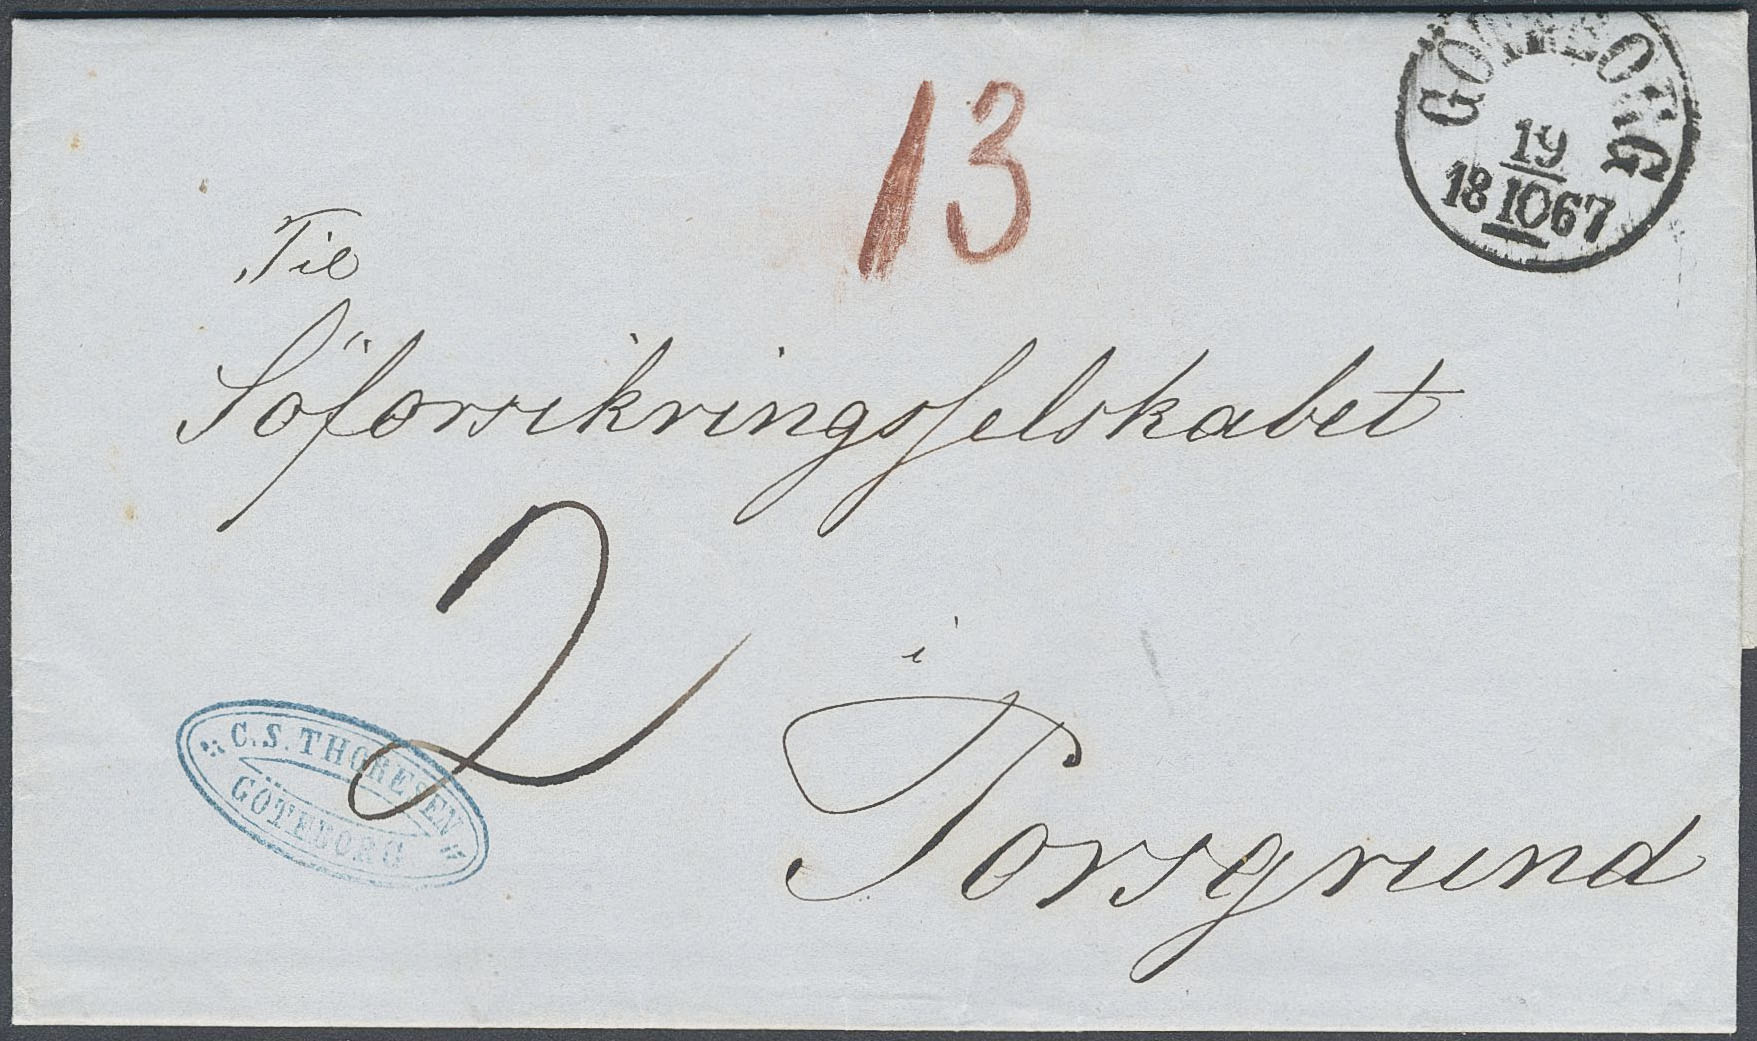 13
GÖTEBORG
19
18 10 67
Til
Söforsikringsselskabet
2
i
Porsgrund
C. S. THORESEN
GÖTEBORG